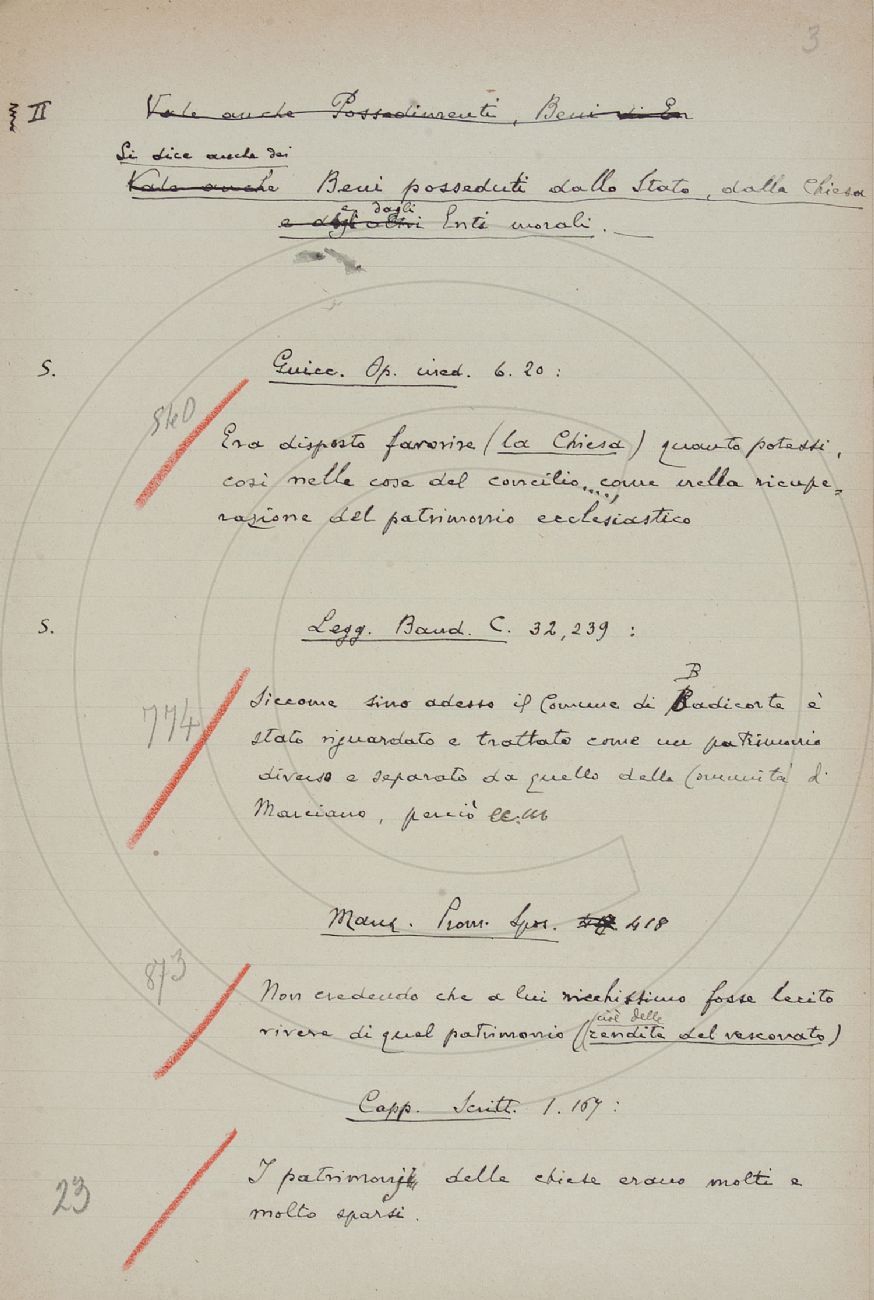 3
II Vale anche Possedimenti, Beni di En
Si dice anche dei
Vale anche Beni posseduti dallo Stato, dalla Chiesa
e dagli
e degli altri Enti morali.
S. Guicc. Op. ined. 6. 20:
940
Era disposto favorire (la Chiesa) quanto potessi,
così nelle cose del concilio...., come nella ricupe=
razione del patrimonio ecclesiastico
S. Legg. Band. C. 32, 239:
B
774 Siccome sino adesso il Comune di Badicorte è
stato riguardato e trattato come un patrimonio
diverso e separato da quello della Comunità di
Marciano, perciò ec.
Manz. Prom. Spos. 418
873
Non credendo che a lui ricchissimo fosse lecito
cioè delle
vivere di quel patrimonio (rendite del vescovato)
Capp. Scritt. 1. 167:
23 I patrimonj delle chiese erano molti e
molto sparsi.